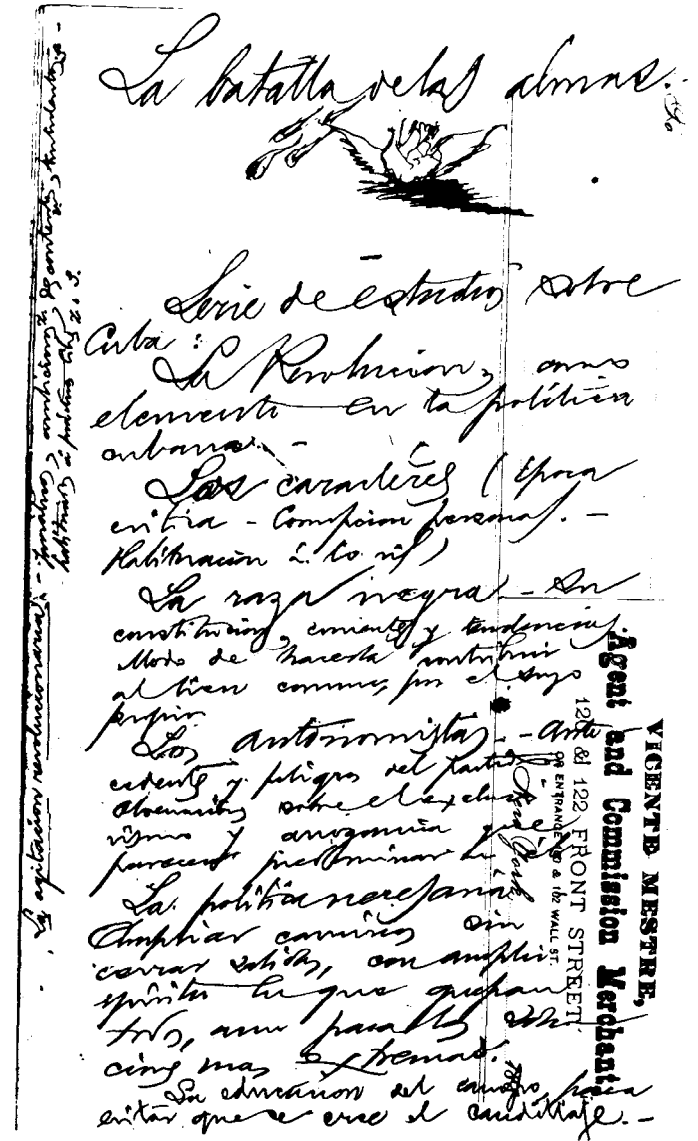 La batalla de las almas.
Serie de estudios sobre
Cuba:
La Revolucion, como
elemento en la política
cubana. -
Los caracteres (época
crítica - Corrupcion personal. -
Habituacion
La raza negra - Su
constitucion, corrientes y tendencias.
Modo de hacerla contribuir
al bien comun, por el suyo
propio.
Los autonomistas. - Ante
cedentes y peligros del Partido
Observaciones sobre el exclusi
vismo y arrogancia que
parecen predominar en
La política necesaria
Ampliar caminos sin
cerrar salidas, con amplio
espíritu en que quepan
todos, aun para las solu
ciones mas extremas.
La educacion del campo, para
evitar que se cree el caudillaje. -
La agitacion revolucionaria. -
VICENTE MESTRE,
Agent and Commission Merchant,
120 & 122 FRONT STREET
OR ENTRANCE 160 & 162 WALL ST.
New York
188